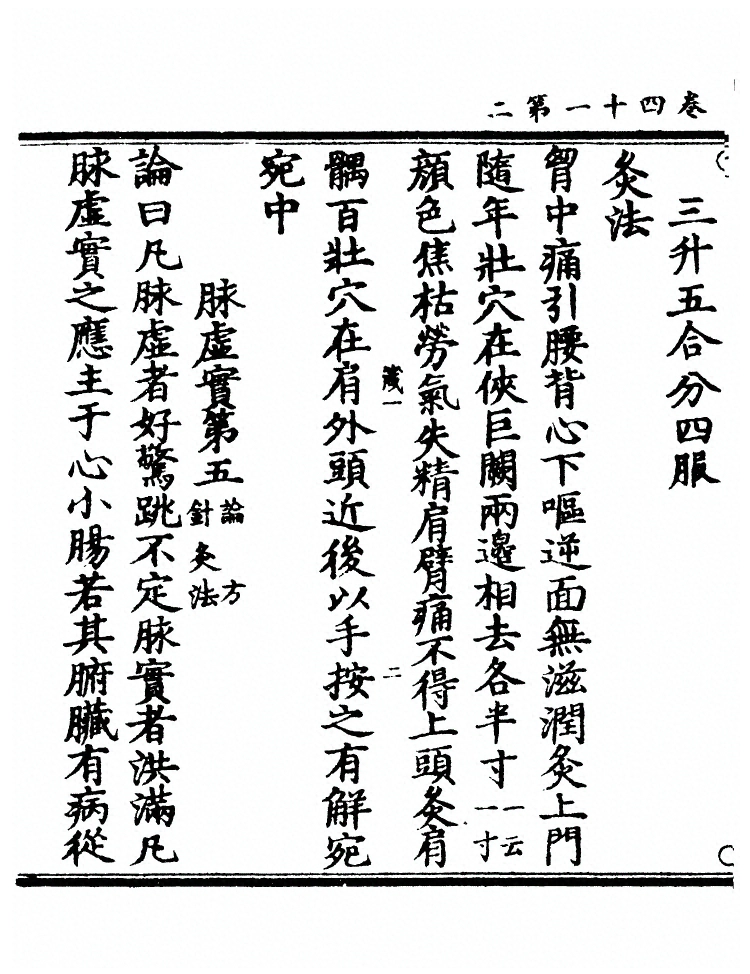 卷四十一第二
三升五合分四服
灸法
胷中痛引腰背心下嘔逆面無滋潤灸上門
隨年壯穴在俠巨闕兩邊相去各半寸一云一寸
顔色焦枯勞氣失精肩臂痛不得上頭灸肩
一
二
髃百壯穴在肩外頭近後以手按之有解宛
宛中
脉虛實第五論方針灸法
論曰凡脉虛者好驚跳不定脉實者洪滿凡
脉虛實之應主于心小腸若其腑臟有病從